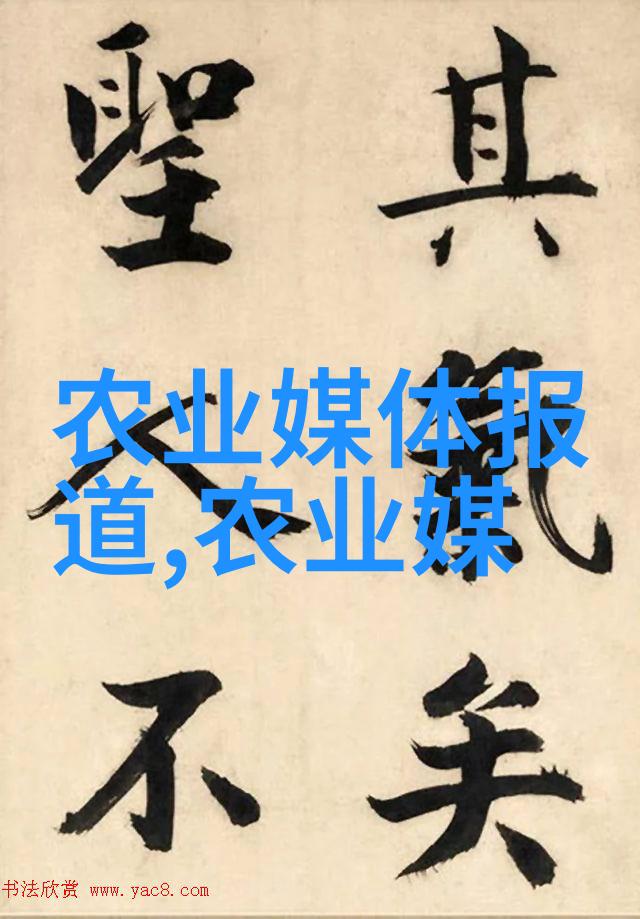 其氣矣
聖人不
农业媒体报
道,农业媒
书法欣赏 www.yac8.com